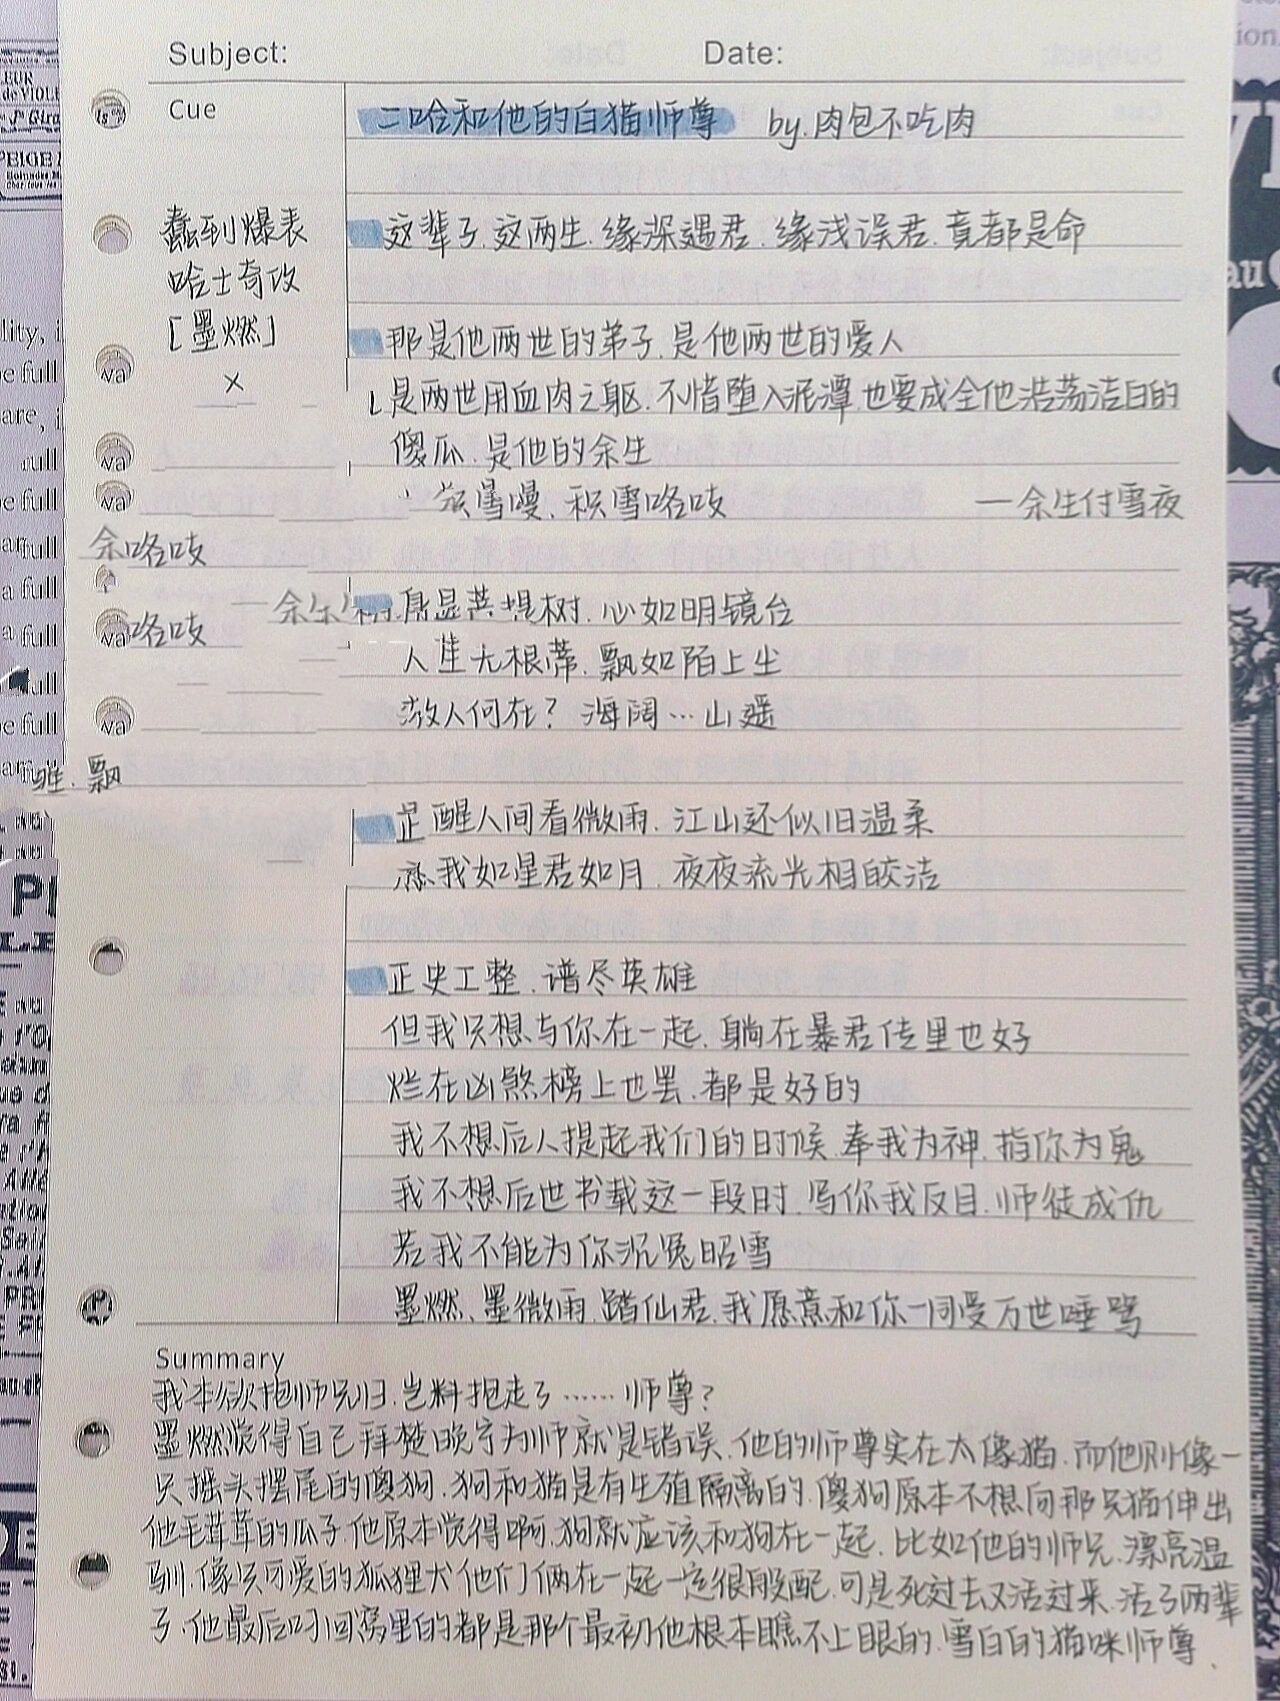 Subject: Date:
Cue
二哈和他的白猫师尊 by.肉包不吃肉
蠢到爆表
哈士奇攻
[墨燃]
×
这辈子.这两生.缘深遇君.缘浅误君.竟都是命
那是他两世的弟子.是他两世的爱人
是两世用血肉之躯.不惜堕入泥潭.也要成全他浩荡洁白的
傻瓜.是他的余生
雪慢.积雪咯吱 —余生付雪夜
余咯吱
咯吱
菩提树.心如明镜台
人生无根蒂.飘如陌上尘
故人何在？海阔…山遥
飘
醒人间看微雨.江山还似旧温柔
我如星君如月.夜夜流光相皎洁
正史工整.谱尽英雄
但我只想与你在一起.躺在暴君传里也好
烂在凶煞榜上也罢.都是好的
我不想后人提起我们的时候.奉我为神.指你为鬼
我不想后世书载这一段时.写你我反目.师徒成仇
若我不能为你沉冤昭雪
墨燃、墨微雨.踏仙君.我愿意和你一同受万世唾骂
Summary
我本欲抱师兄归.岂料抱走了……师尊？
墨燃觉得自己拜楚晚宁为师就是错误.他的师尊实在太像猫.而他则像一
只摇头摆尾的傻狗.狗和猫是有生殖隔离的.傻狗原本不想向那只猫伸出
他毛茸茸的爪子.他原本觉得啊.狗就应该和狗在一起.比如他的师兄.漂亮温
驯.像只可爱的狐狸犬他们俩在一起一定很般配.可是死过去又活过来.活了两辈
子.他最后叼回窝里的都是那个最初他根本瞧不上眼的.雪白的猫咪师尊.